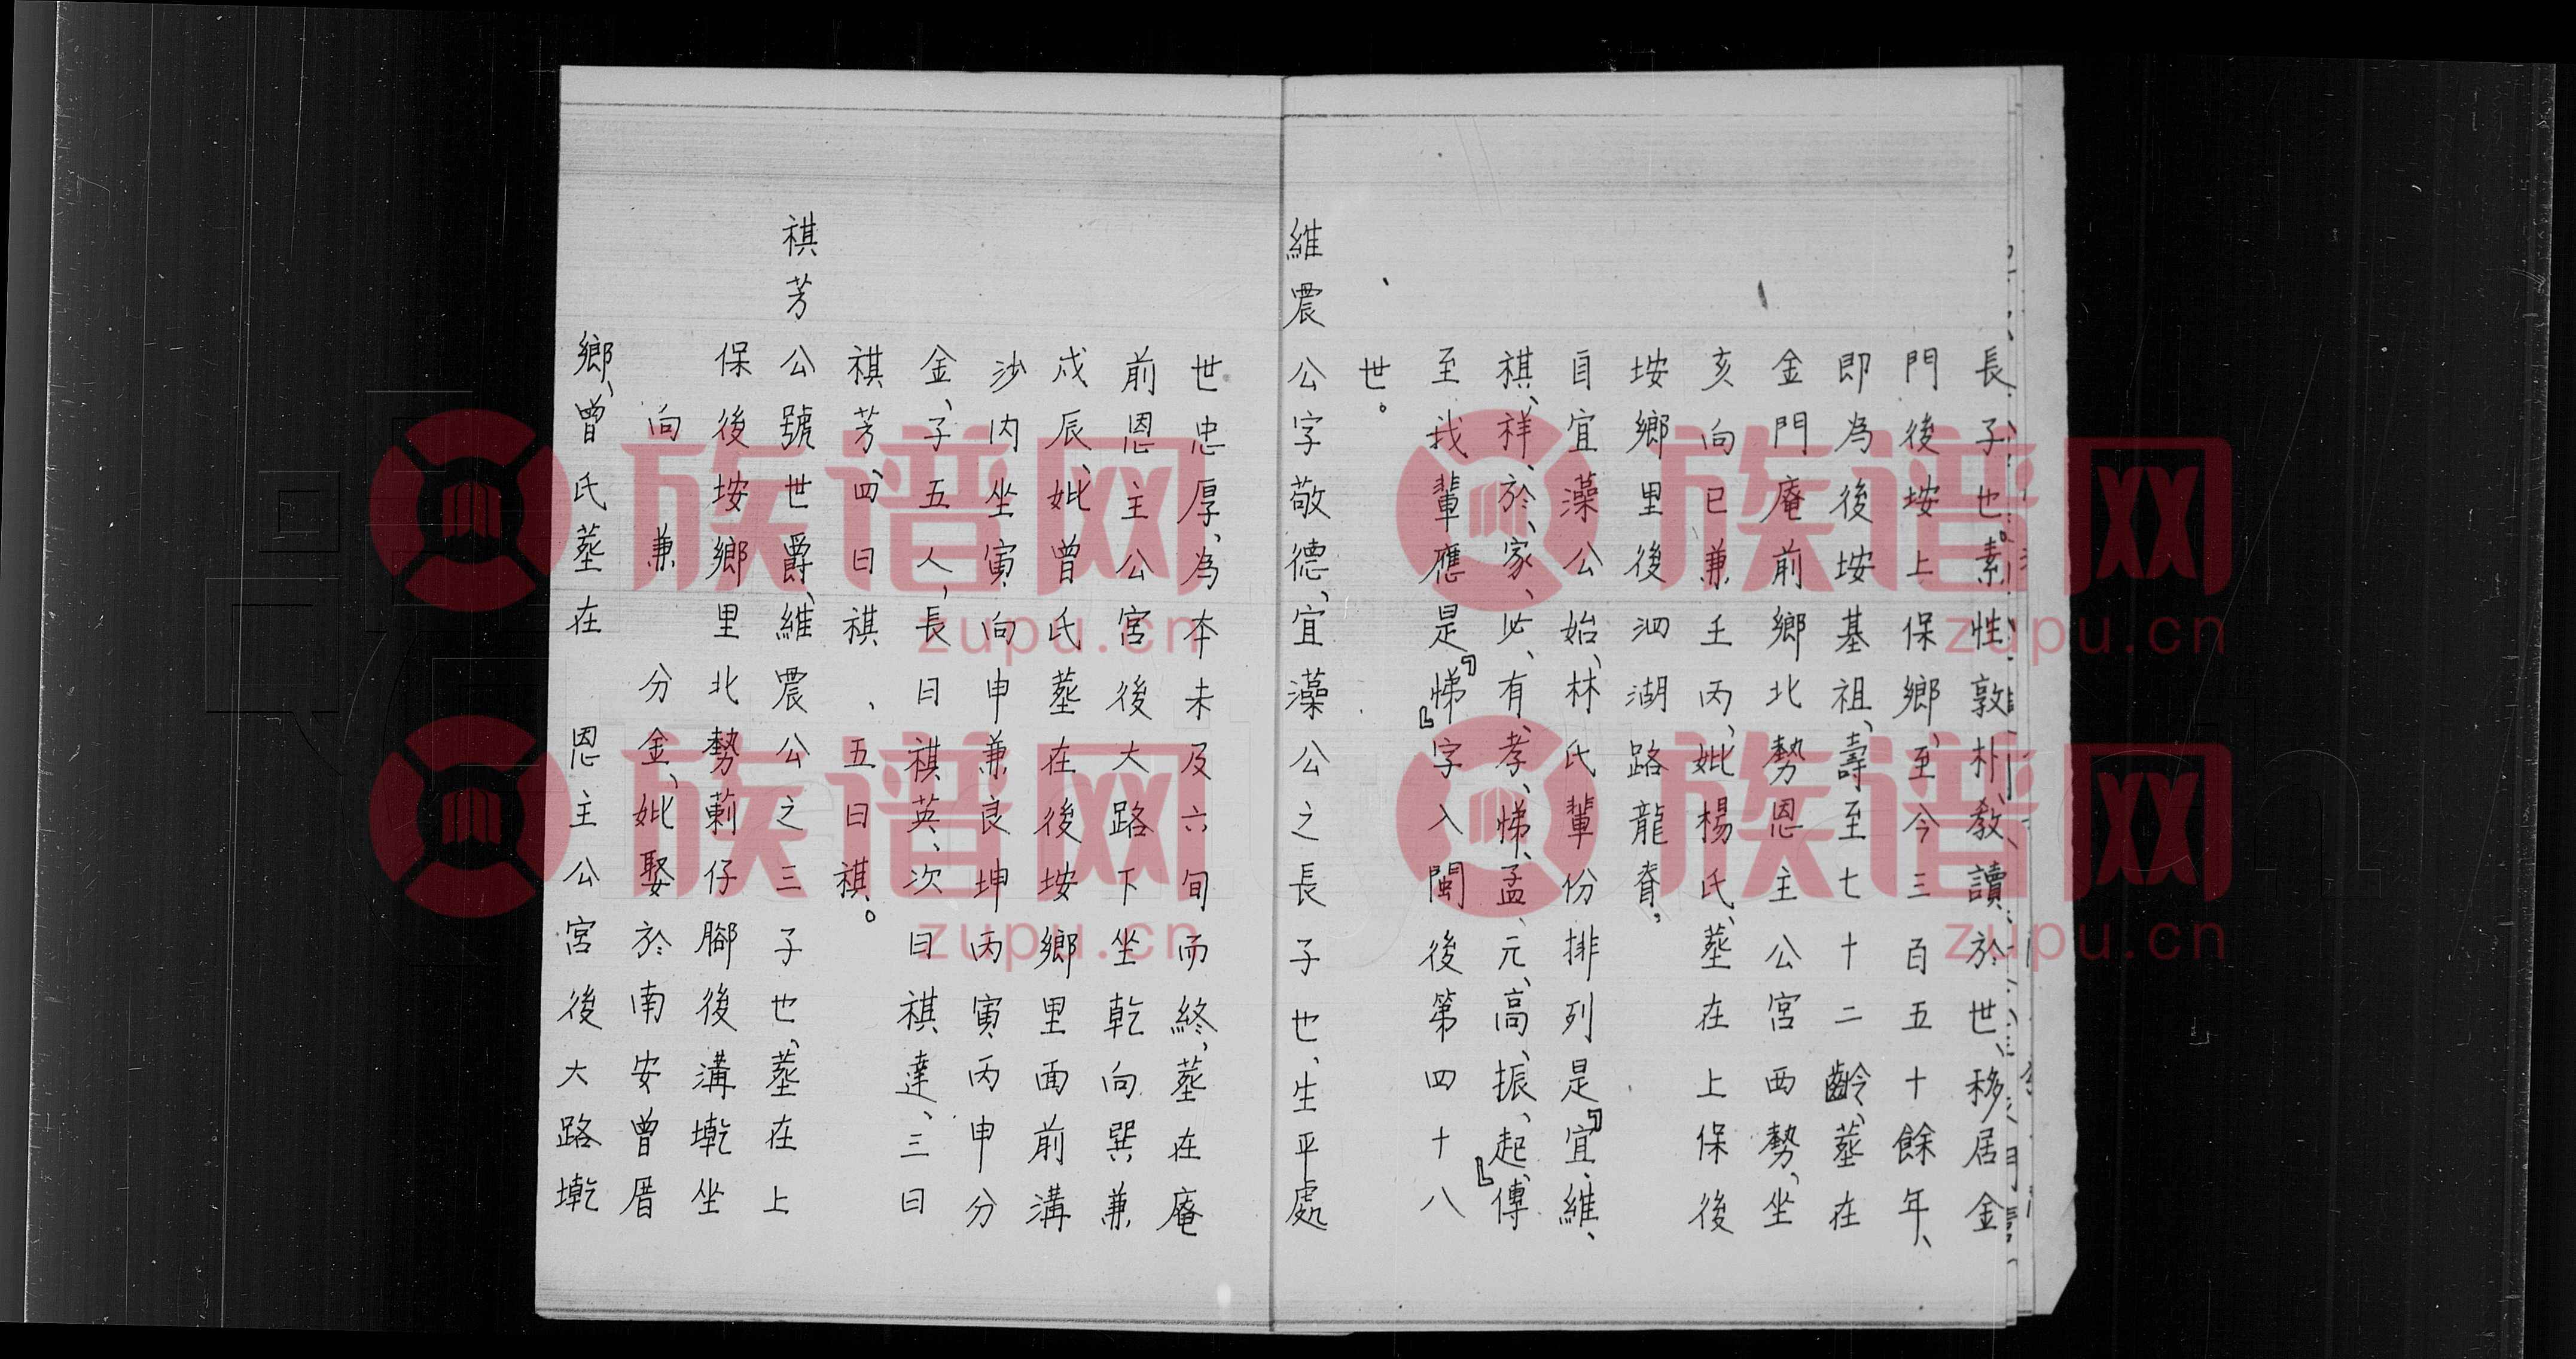 長子也。素性敦朴、教讀於世、移居金
門後垵上保鄉、至今三百五十餘年、
即為後垵基祖、壽至七十二齡、塟在
金門庵前鄉北勢恩主公宮西勢、坐
亥向巳兼壬丙、妣楊氏、塟在上保後
垵鄉里後泗湖路龍脊，
自宜藻公始、林氏輩份排列是『宜、維、
祺、祥、於、家、必、有、孝、悌、孟、元、高、振、起』傳
至我輩應是『悌』字入閩後第四十八
世。
維震公字敬德、宜藻公之長子也、生平處
世忠厚、為本未及六旬而終、塟在庵
前恩主公宮後大路下坐乾向巽兼
戍辰、妣曾氏塟在後垵鄉里面前溝
沙內坐寅向申兼艮坤丙寅丙申分
金、子五人，長曰祺英、次曰祺達、三曰
祺芳、四曰祺、五曰祺。
祺芳公號世爵、維震公之三子也、塟在上
保後垵鄉里北勢莿仔腳後溝墘坐
向 兼 分金、妣娶於南安曾厝
鄉、曾氏塟在 恩主公宮後大路墘
族谱网
zupu.cn
族谱网
zupu.cn
族谱网
zupu.cn
族谱网
zupu.cn